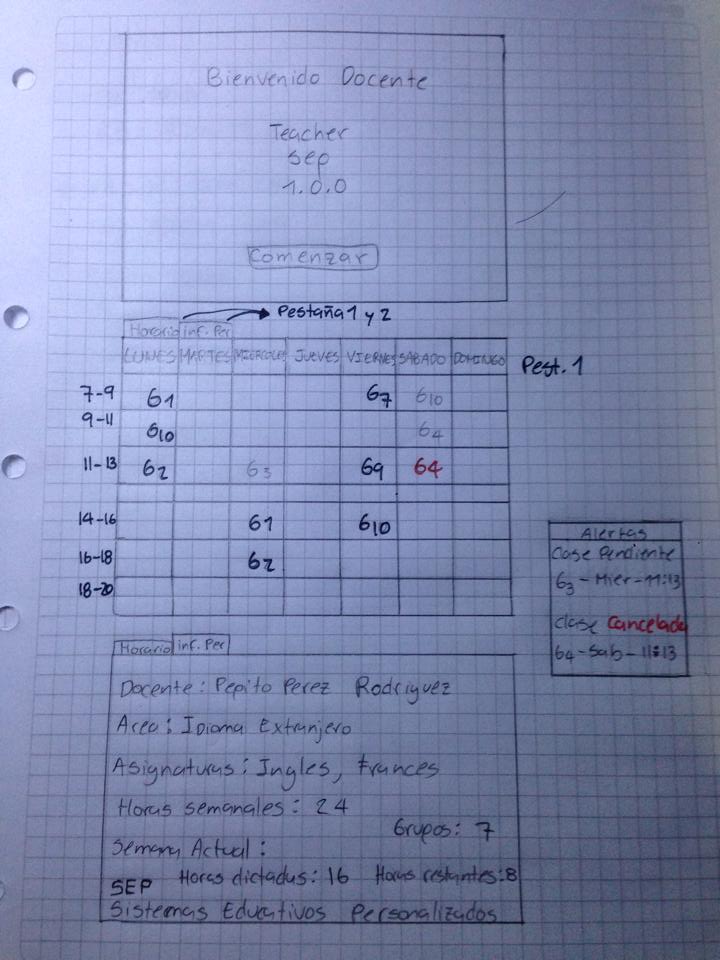 Bienvenido Docente
Teacher
sep
1.0.0
Comenzar
Pestaña 1 y 2
Horario inf. Per
LUNES MARTES MIERCOLES JUEVES VIERNES SABADO DOMINGO Pest. 1
7-9 61 67 610
9-11 610 64
11-13 62 63 69 64
14-16 61 610
16-18 62
18-20
Alertas
Clase Pendiente
63 - Mier - 11:13
Clase Cancelada
64 - Sab - 11:13
Horario inf. Per
Docente: Pepito Perez Rodriguez
Area: Idioma Extranjero
Asignaturas: Ingles, Frances
Horas semanales: 24
Grupos: 7
Semana Actual:
Horas dictadas: 16 Horas restantes: 8
SEP
Sistemas Educativos Personalizados